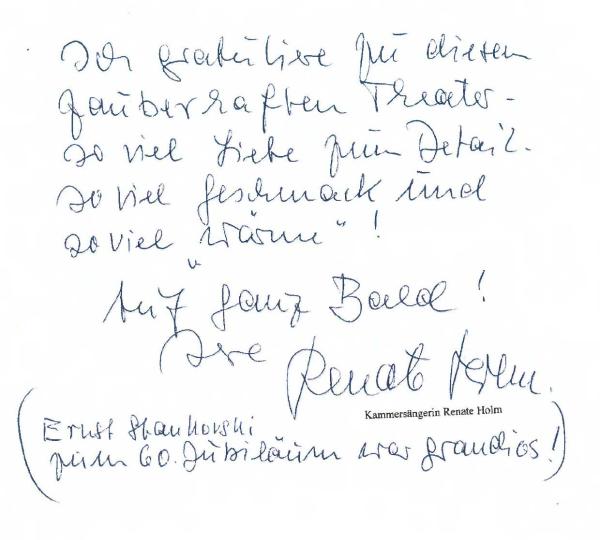 Ich gratuliere zu diesem
zauberhaften Theater -
so viel Liebe zum Detail.
so viel Geschmack und
so viel „Wärme“!
Auf ganz Bald!
Ihre Renate Holm.
Kammersängerin Renate Holm
(Ernst Stankovski
zum 60. Jubiläum war grandios!)